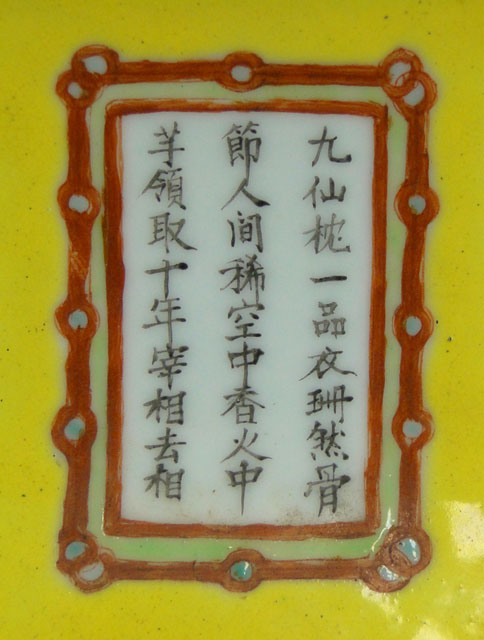 九仙枕一品衣珊然骨
節人间稀空中香火中
芋領取十年宰相去相